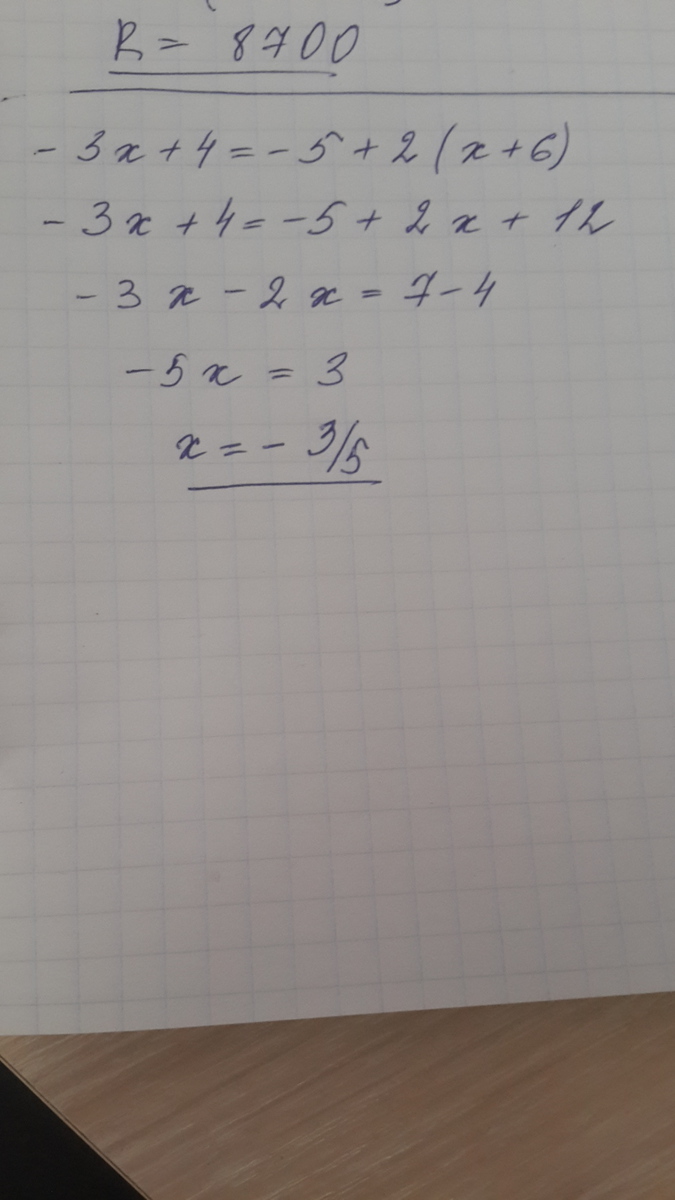 R = 8700
- 3x + 4 = - 5 + 2 (x + 6)
- 3x + 4 = - 5 + 2x + 12
- 3x - 2x = 7 - 4
- 5x = 3
x = - 3/5